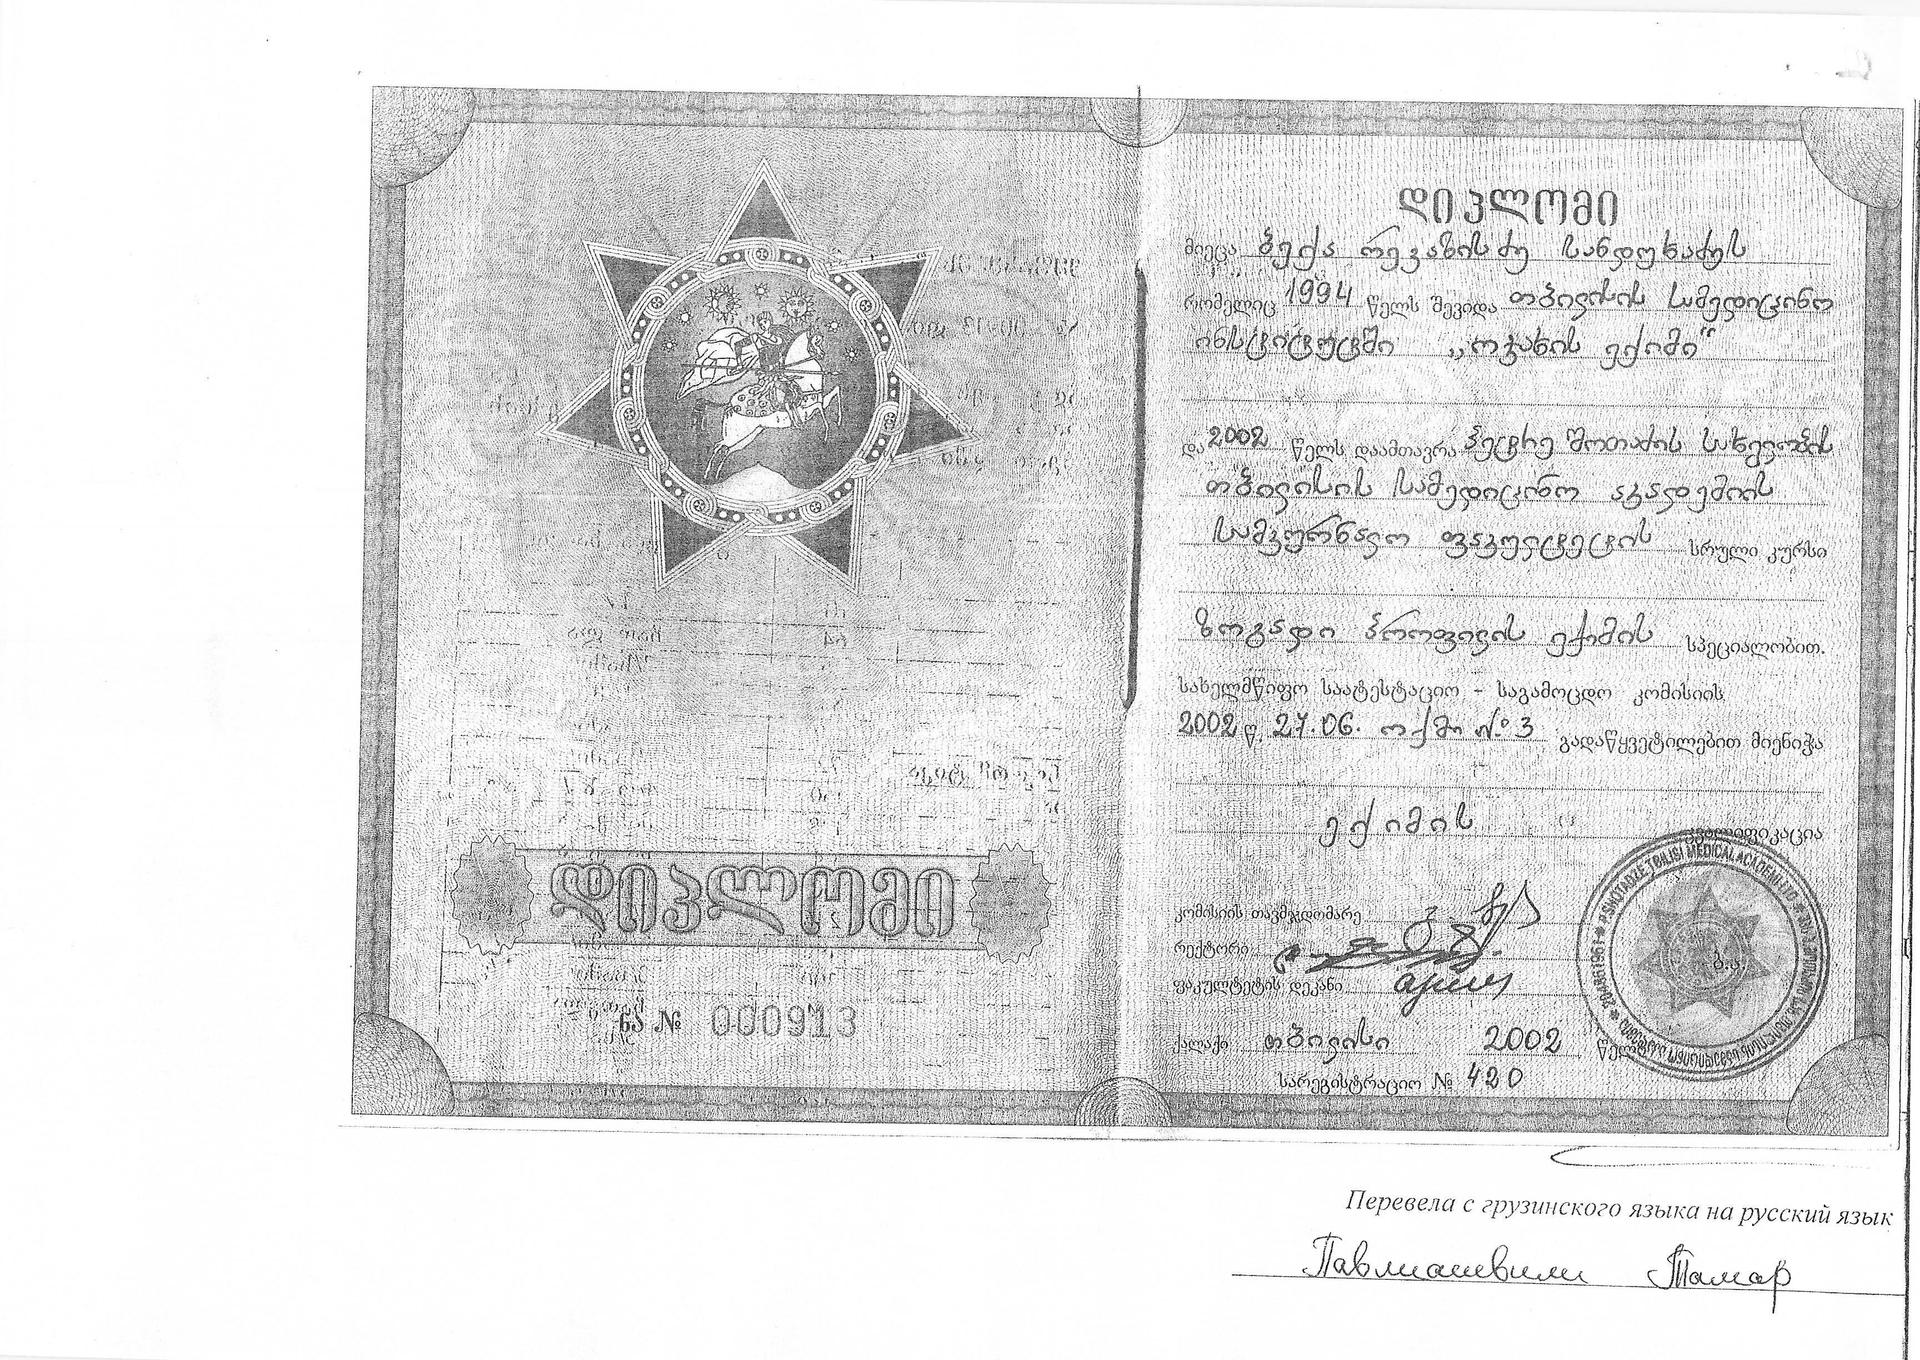 დიპლომი
ნა № 000913
დიპლომი
მიეცა ბექა რევაზის ძე სანდუხაძეს
რომელიც 1994 წელს შევიდა თბილისის სამედიცინო
ინსტიტუტში „ოჯახის ექიმი“
და 2002 წელს დაამთავრა პეტრე შოთაძის სახელობის
თბილისის სამედიცინო აკადემიის
სამკურნალო ფაკულტეტის სრული კურსი
ზოგადი პროფილის ექიმის სპეციალობით.
სახელმწიფო საატესტაციო - საგამოცდო კომისიის
2002 წ. 27.06. ოქმი № 3 გადაწყვეტილებით მიენიჭა
ექიმის კვალიფიკაცია
კომისიის თავმჯდომარე
რექტორი
ფაკულტეტის დეკანი
ქალაქი თბილისი 2002 წელი
სარეგისტრაციო № 420
P.SHOTADZE TBILISI MEDICAL ACADEMI LTD
ბ.ა.
Перевела с грузинского языка на русский язык
Павлиашвили Тамар